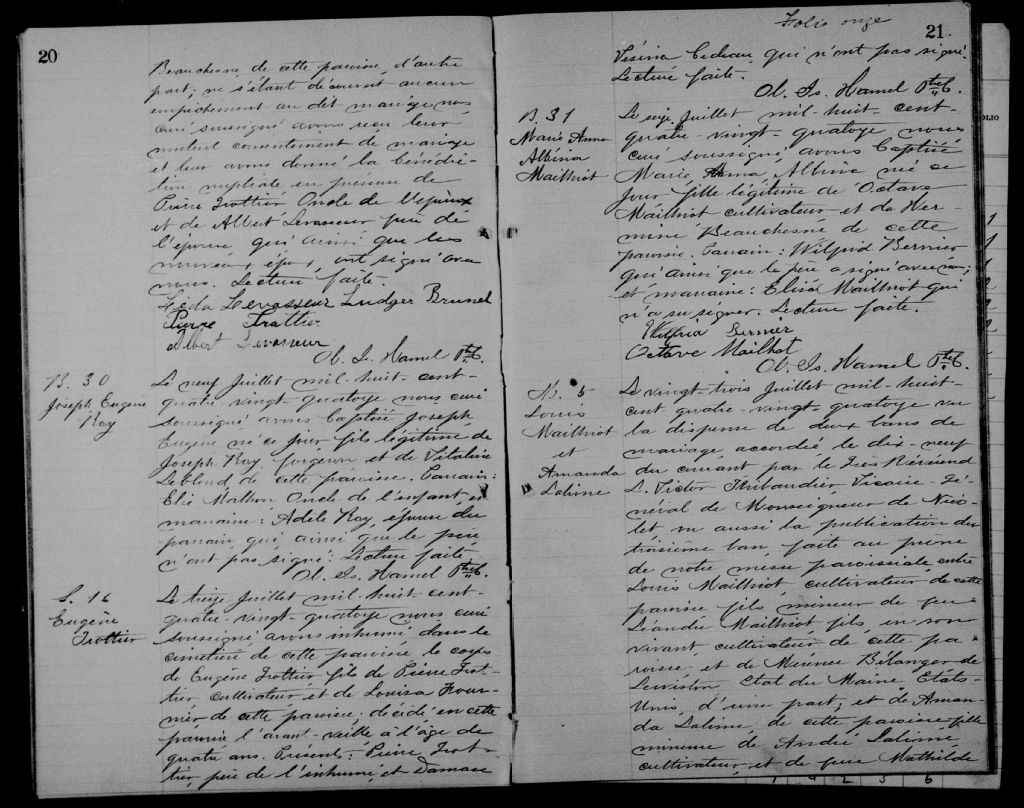 20
Beauchesne de cette paroisse, d'autre
part; ne s'étant découvert aucun
empêchement au dit mariage nous
curé soussigné avons reçu leur
mutuel consentement de mariage
et leur avons donné la bénédic-
tion nuptiale en présence de
Pierre Trottier Oncle de l'époux
et de Albert Levasseur père de
l'épouse, qui ainsi que les
ont signé avec
nous. Lecture faite.
Levasseur Ludger Brunel
Pierre Trottier
Albert Levasseur
Ol. Is. Hamel Ptre
B. 30
Joseph Eugène
Roy
Le neuf Juillet mil-huit-cent-
quatre-vingt-quatorze nous curé
soussigné avons baptisé Joseph,
Eugène né ce jour fils légitime de
Joseph Roy forgeron et de Vitaline
Leblond de cette paroisse. Parrain:
Elie Mathon Oncle de l'enfant, et
marraine: Adèle Roy, épouse du
parrain, qui ainsi que le père
n'ont pas signé. Lecture faite.
Ol. Is. Hamel Ptre
S. 16
Eugène
Trottier
Le treize Juillet mil-huit-cent-
quatre-vingt-quatorze nous curé
soussigné avons inhumé dans le
cimetière de cette paroisse le corps
de Eugène Trottier fils de Pierre Trot-
tier, cultivateur et de Louisa Four-
nier de cette paroisse; décédé en cette
paroisse l'avant-veille à l'âge de
quatre ans. Présents: Pierre Trot-
tier, père de l'inhumé, et Damase
Folio onze
21.
qui n'ont pas signé.
Lecture faite.
Ol. Is. Hamel Ptre
B. 31
Marie Anna
Albina
Mailhiot
Le seize Juillet mil-huit-cent-
quatre-vingt-quatorze nous
curé soussigné avons baptisé
Marie, Anna, Albina née ce
jour fille légitime de Octave
Mailhiot cultivateur et de Her-
mine Beauchesne de cette
paroisse. Parrain: Wilfrid Bernier
qui ainsi que le père a signé avec nous;
et marraine: Eliza Mailhiot qui
n'a su signer. Lecture faite.
Wilfrid Bernier
Octave Mailhot
Ol. Is. Hamel Ptre
M. 5
Louis
Mailhiot
et
Amanda
Lalime
Le vingt-trois Juillet mil-huit-
cent quatre-vingt-quatorze vu
la dispense de deux bans de
mariage accordé le dix-neuf
du courant par le Très Révérend
L. Victor Thibaudier Vicaire-Gé-
néral de Monseigneur de Nico-
let vu aussi la publication du
troisième ban faite au prône
de notre messe paroissiale entre
Louis Mailhiot, cultivateur de cette
paroisse fils mineur de feu
Léandre Mailhiot fils en son
vivant cultivateur de cette pa-
roisse et de Bélanger de
Lewiston, Etat du Maine, Etats-
Unis, d'une part; et de Aman-
da Lalime, de cette paroisse fille
mineure de André Lalime
cultivateur, et de feue Mathilde